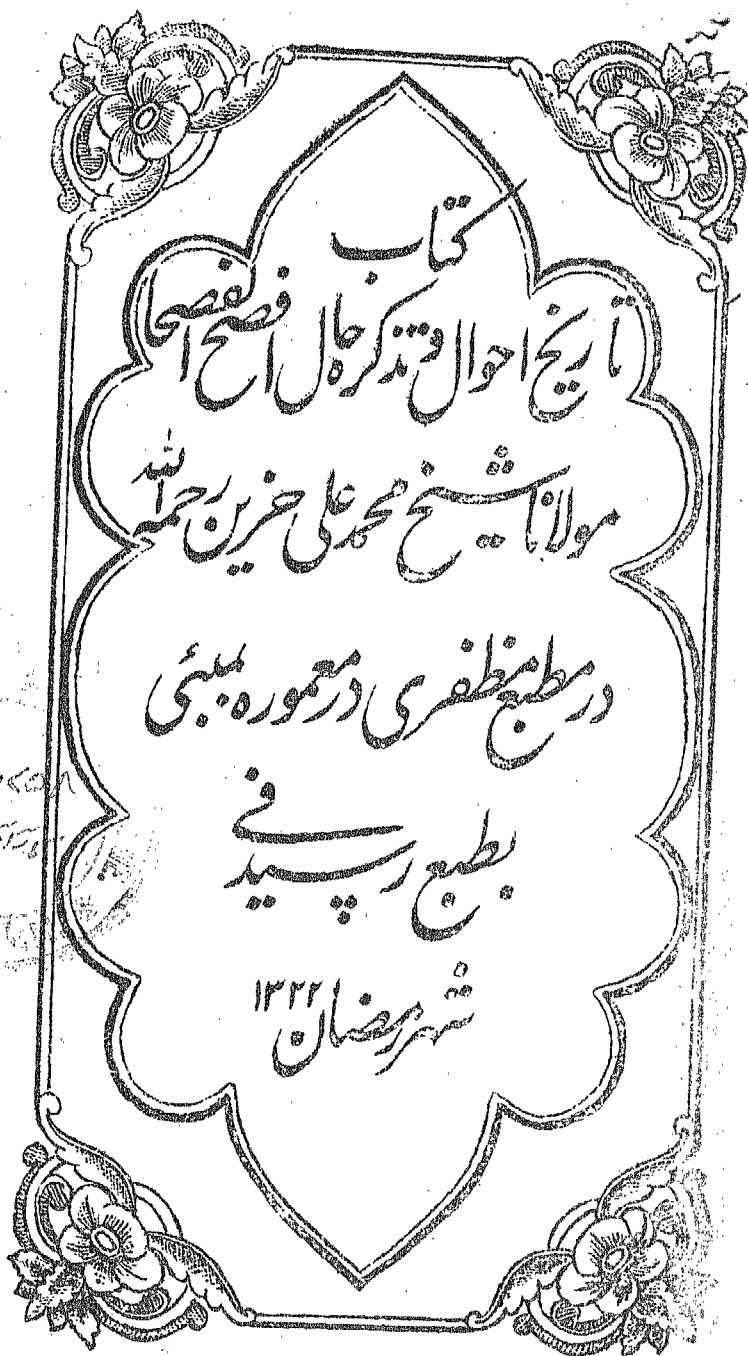 كتاب
تاريخ احوال و تذكره حال افصح الفصحا
مولانا شيخ محمد على حزين رحمه الله
در مطبع مظفرى در معموره بمبئى
بطبع رسيد فى
شهر رمضان ۱۳۲۲